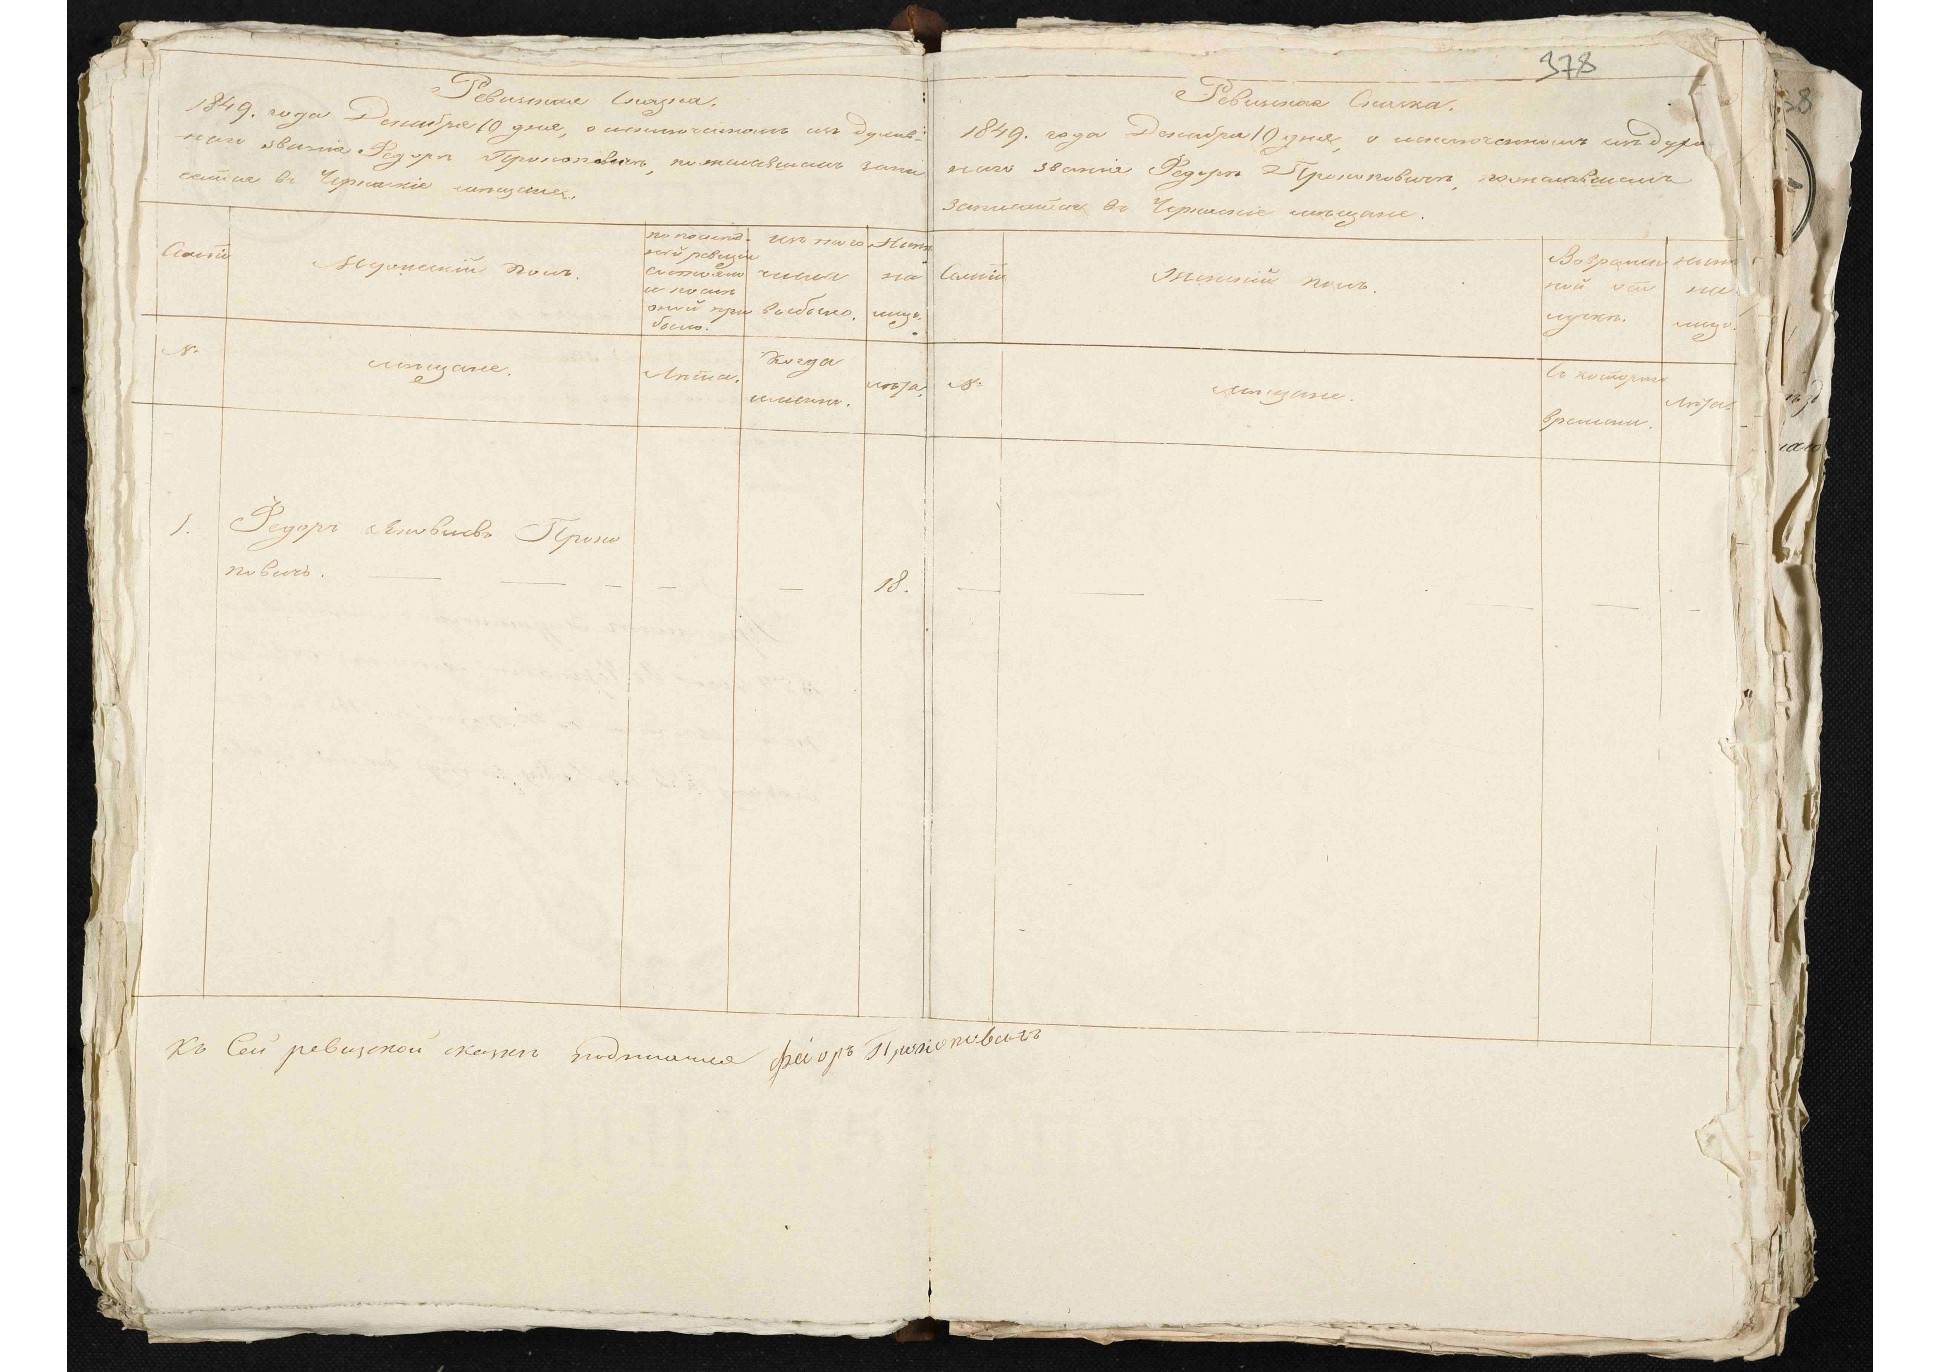 Ревизская Сказка.
1849. года Декабря 10 дня, о исключенномъ изъ духов-
наго званія Федорѣ Прокоповичѣ, пожелавшемъ запи
сатся въ Черкаскіе мѣщане.
Семьи
Мужескій полъ.
по послѣд-
ней ревизіи
состояло
и послѣ
оной при
было.
изъ того
числа
выбыло.
Нынѣ
на
лицо.
№
мѣщане.
Лѣта.
Когда
именно.
лѣта.
1. Федоръ Яковлевъ Проко
повичь. 18.
378
Ревизская Сказка.
1849. года Декабря 10 дня, о исключенномъ изъ духо
наго званія Федорѣ Прокоповичѣ, пожелавшемъ
записатся въ Черкаскіе мѣщане.
Семьи
Женскій полъ.
Во времен
ной отъ
лучкѣ.
нынѣ
на
лицо.
№
мѣщане.
Съ котораго
времени.
Лѣта.
Къ Сей ревизской сказкѣ подписался федоръ Прокоповичъ